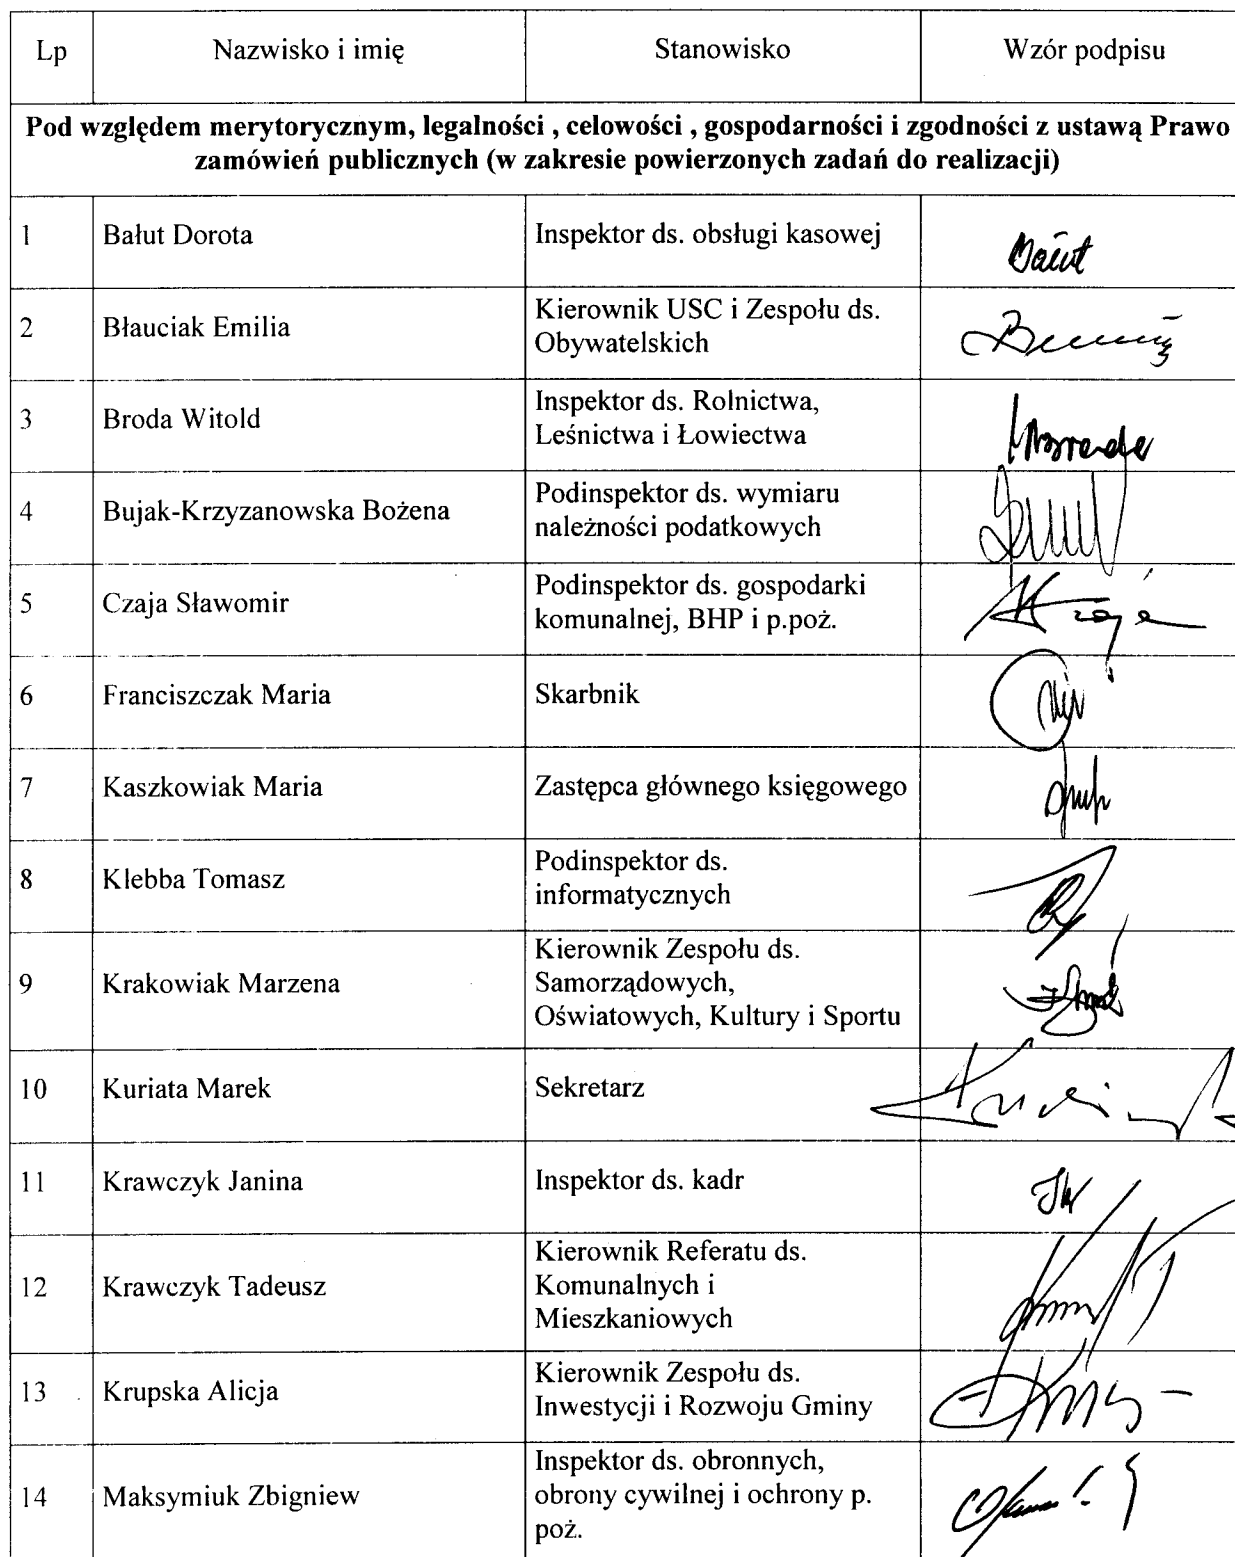 Lp Nazwisko i imię Stanowisko Wzór podpisu
Pod względem merytorycznym, legalności , celowości , gospodarności i zgodności z ustawą Prawo
zamówień publicznych (w zakresie powierzonych zadań do realizacji)
1 Bałut Dorota Inspektor ds. obsługi kasowej Bałut
2 Błauciak Emilia Kierownik USC i Zespołu ds.
Obywatelskich
3 Broda Witold Inspektor ds. Rolnictwa,
Leśnictwa i Łowiectwa
4 Bujak-Krzyzanowska Bożena Podinspektor ds. wymiaru
należności podatkowych
5 Czaja Sławomir Podinspektor ds. gospodarki
komunalnej, BHP i p.poż.
6 Franciszczak Maria Skarbnik
7 Kaszkowiak Maria Zastępca głównego księgowego
8 Klebba Tomasz Podinspektor ds.
informatycznych
9 Krakowiak Marzena Kierownik Zespołu ds.
Samorządowych,
Oświatowych, Kultury i Sportu
10 Kuriata Marek Sekretarz
11 Krawczyk Janina Inspektor ds. kadr
12 Krawczyk Tadeusz Kierownik Referatu ds.
Komunalnych i
Mieszkaniowych
13 Krupska Alicja Kierownik Zespołu ds.
Inwestycji i Rozwoju Gminy
14 Maksymiuk Zbigniew Inspektor ds. obronnych,
obrony cywilnej i ochrony p.
poż.